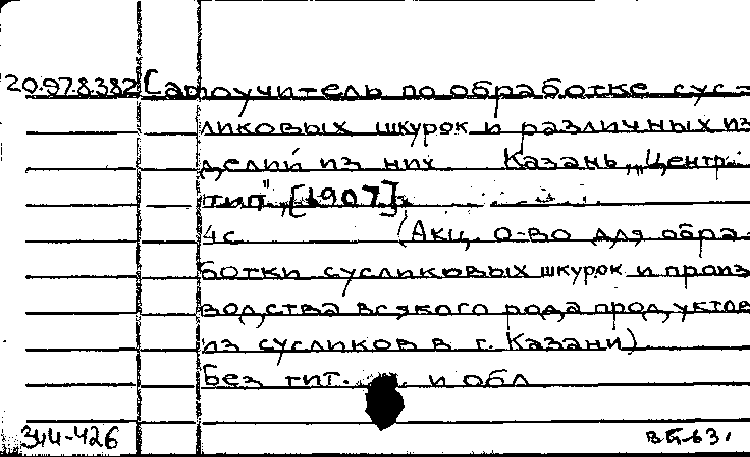 20.97.8.382 Самоучитель по обработке сус-
ликовых шкурок и различных из
делий из них Казань, „Центр.
тип", [1907].
4с. (Акц. о-во для обра-
ботки сусликовых шкурок и произ
водства всякого рода продуктов
из сусликов в г. Казани)
Без тит. л. и обл
344-426